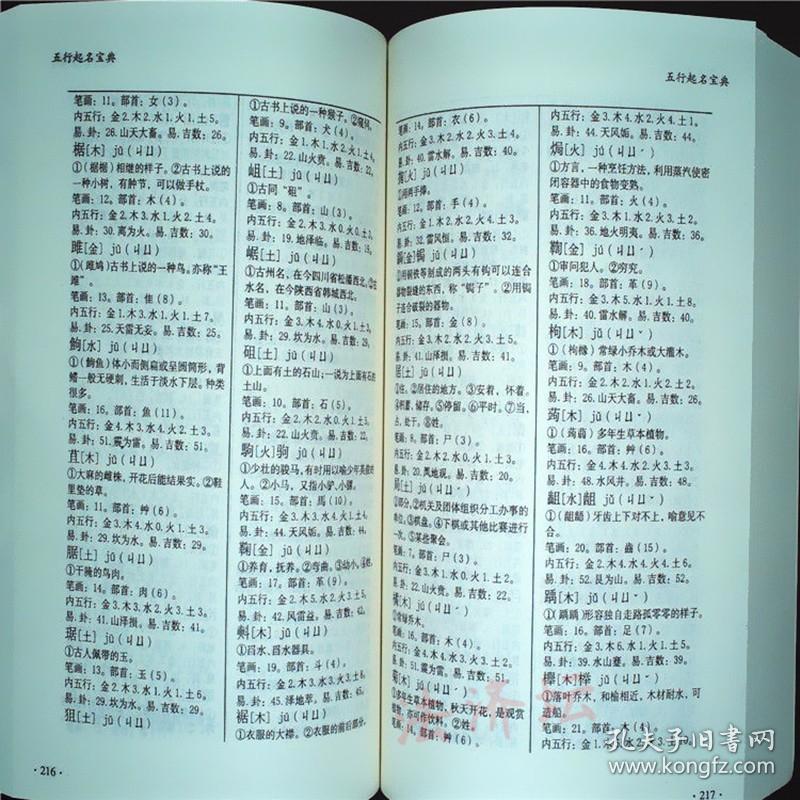 五行起名宝典
笔画：11。部首：女(3)。
内五行：金2.木2.水1.火1.土5。
易.卦：26.山天大畜。易.吉数：26。
椐[木] jū(ㄐㄩ)
①(椐椐)相继的样子。②古书上说的
一种小树，有肿节，可以做手杖。
笔画：12。部首：木(4)。
内五行：金2.木3.水1.火2.土4。
易.卦：30.离为火。易.吉数：30。
雎[金] jū(ㄐㄩ)
①(雎鸠)古书上说的一种鸟。亦称“王
雎”。
笔画：13。部首：隹(8)。
内五行：金3.木2.水1.火1.土7。
易.卦：25.天雷无妄。易.吉数：25。
[水] jū(ㄐㄩ)
体小而侧扁或呈圆筒形，背
鳍一般无硬刺，生活于淡水下层。种类
很多。
笔画：16。部首：魚(11)。
内五行：金4.木3.水2.火4.土3。
易.卦：51.震为雷。易.吉数：51。
苴[木] jū(ㄐㄩ)
①大麻的雌株，开花后能结果实。②鞋
里垫的草。
笔画：11。部首：艸(6)。
内五行：金2.木4.水0.火1.土3。
易.卦：29.坎为水。易.吉数：29。
腒[土] jū(ㄐㄩ)
①干腌的鸟肉。
笔画：14。部首：肉(6)。
内五行：金3.木3.水2.火2.土4。
易.卦：41.山泽损。易.吉数：41。
琚[土] jū(ㄐㄩ)
①古人佩带的玉。
笔画：13。部首：玉(5)。
内五行：金2.木3.水0.火1.土6。
易.卦：29.坎为水。易.吉数：29。
狙[土] jū(ㄐㄩ)
·216·
①古书上说的一种猴子。②窥伺。
笔画：9。部首：犬(4)。
内五行：金1.木1.水2.火1.土4。
易.卦：22.山火贲。易.吉数：22。
岨[土] jū(ㄐㄩ)
①古同“砠”。
笔画：8。部首：山(3)。
内五行：金2.木3.水0.火0.土3。
易.卦：19.地泽临。易.吉数：19。
崌[土] jū(ㄐㄩ)
①古州名，在今四川省松潘西北。②古
水名，在今陕西省韩城西北。
笔画：11。部首：山(3)。
内五行：金3.木4.水0.火1.土3。
易.卦：29.坎为水。易.吉数：29。
砠[土] jū(ㄐㄩ)
①上面有土的石山；一说为上面有石的
土山。
笔画：10。部首：石(5)。
内五行：金2.木2.水0.火1.土5。
易.卦：22.山火贲。易.吉数：22。
駒[火]驹 jū(ㄐㄩ)
①少壮的骏马，有时用以喻少年英俊的
人。②小马，又指小驴、小骡。
笔画：15。部首：馬(10)。
内五行：金3.木3.水2.火4.土3。
易.卦：44.天风姤。易.吉数：44。
鞠[金] jū(ㄐㄩ)
①养育，抚养。②弯曲。③幼小。④姓。
笔画：17。部首：革(9)。
内五行：金2.木5.水2.火3.土5。
易.卦：42.风雷益。易.吉数：42。
[木] jū(ㄐㄩ)
①舀水、舀水器具。
笔画：19。部首：斗(4)。
易.卦：45.泽地萃。易.吉数：45。
裾[木] jū(ㄐㄩ)
①衣服的大襟。②衣服的前后部分。
五行起名宝典
笔画：14。部首：衣(6)。
内五行：金3.木2.水2.火3.土4。
易.卦：40.雷水解。易.吉数：40。
[火] jū(ㄐㄩ)
笔画：12。部首：手(4)。
内五行：金3.木2.水1.火2.土4。
易.卦：32.雷风恒。易.吉数：32。
鋦[金]锔 jū(ㄐㄩ)
①用钢铁等制成的两头有钩可以连合
器物裂缝的东西，称“锔子”。②用锔
子连合破裂的器物。
笔画：15。部首：金(8)。
易.卦：41.山泽损。易.吉数：41。
居[土] jū(ㄐㄩ)
①住。②居住的地方。③安着，怀着。
④积蓄，储存。⑤停留。⑥平时。⑦当，
占，处于。⑧姓。
笔画：8。部首：尸(3)。
易.卦：20.风地观。易.吉数：20。
局[土] jú(ㄐㄩˊ)
①部分。②机关及团体组织分工办事的
单位。③棋盘。④下棋或其他比赛进行
一次。⑤某些聚会。
笔画：7。部首：尸(3)。
内五行：金3.木1.水0.火1.土2。
易.卦：22.山火贲。易.吉数：22。
橘[木] jú(ㄐㄩˊ)
①常绿乔木。
笔画：16。部首：木(4)。
内五行：金4.木4.水2.火3.土3。
易.卦：51.震为雷。易.吉数：51。
菊[木] jú(ㄐㄩˊ)
①多年生草本植物，秋天开花，是观赏
植物，亦可作饮料。②姓。
笔画：14。部首：艸(6)。
易.卦：44.天风姤。易.吉数：44。
焗[火] jú(ㄐㄩˊ)
①方言，一种烹饪方法，利用蒸汽使密
闭容器中的食物变熟。
笔画：11。部首：火(4)。
易.卦：36.地火明夷。易.吉数：36。
鞫[金] jú(ㄐㄩˊ)
①审问犯人。②穷究。
笔画：18。部首：革(9)。
易.卦：40.雷水解。易.吉数：40。
枸[木] jǔ(ㄐㄩˇ)
①(枸橼)常绿小乔木或大灌木。
笔画：9。部首：木(4)。
易.卦：26.山天大畜。易.吉数：26。
蒟[木] jǔ(ㄐㄩˇ)
①(蒟蒻)多年生草本植物。
笔画：16。部首：艸(6)。
易.卦：48.水风井。易.吉数：48。
齟[水]龃 jǔ(ㄐㄩˇ)
①(龃龉)牙齿上下对不上，喻意见不
合。
笔画：20。部首：齒(15)。
内五行：金4.木4.水2.火4.土6。
易.卦：52.艮为山。易.吉数：52。
踽[木] jǔ(ㄐㄩˇ)
①(踽踽)形容独自走路孤零零的样子。
笔画：16。部首：足(7)。
易.卦：39.水山蹇。易.吉数：39。
櫸[木]榉 jǔ(ㄐㄩˇ)
①落叶乔木，和榆相近，木材耐水，可
造船。
笔画：21。部首：木(4)。
·217·
孔夫子旧书网
www.kongfz.com